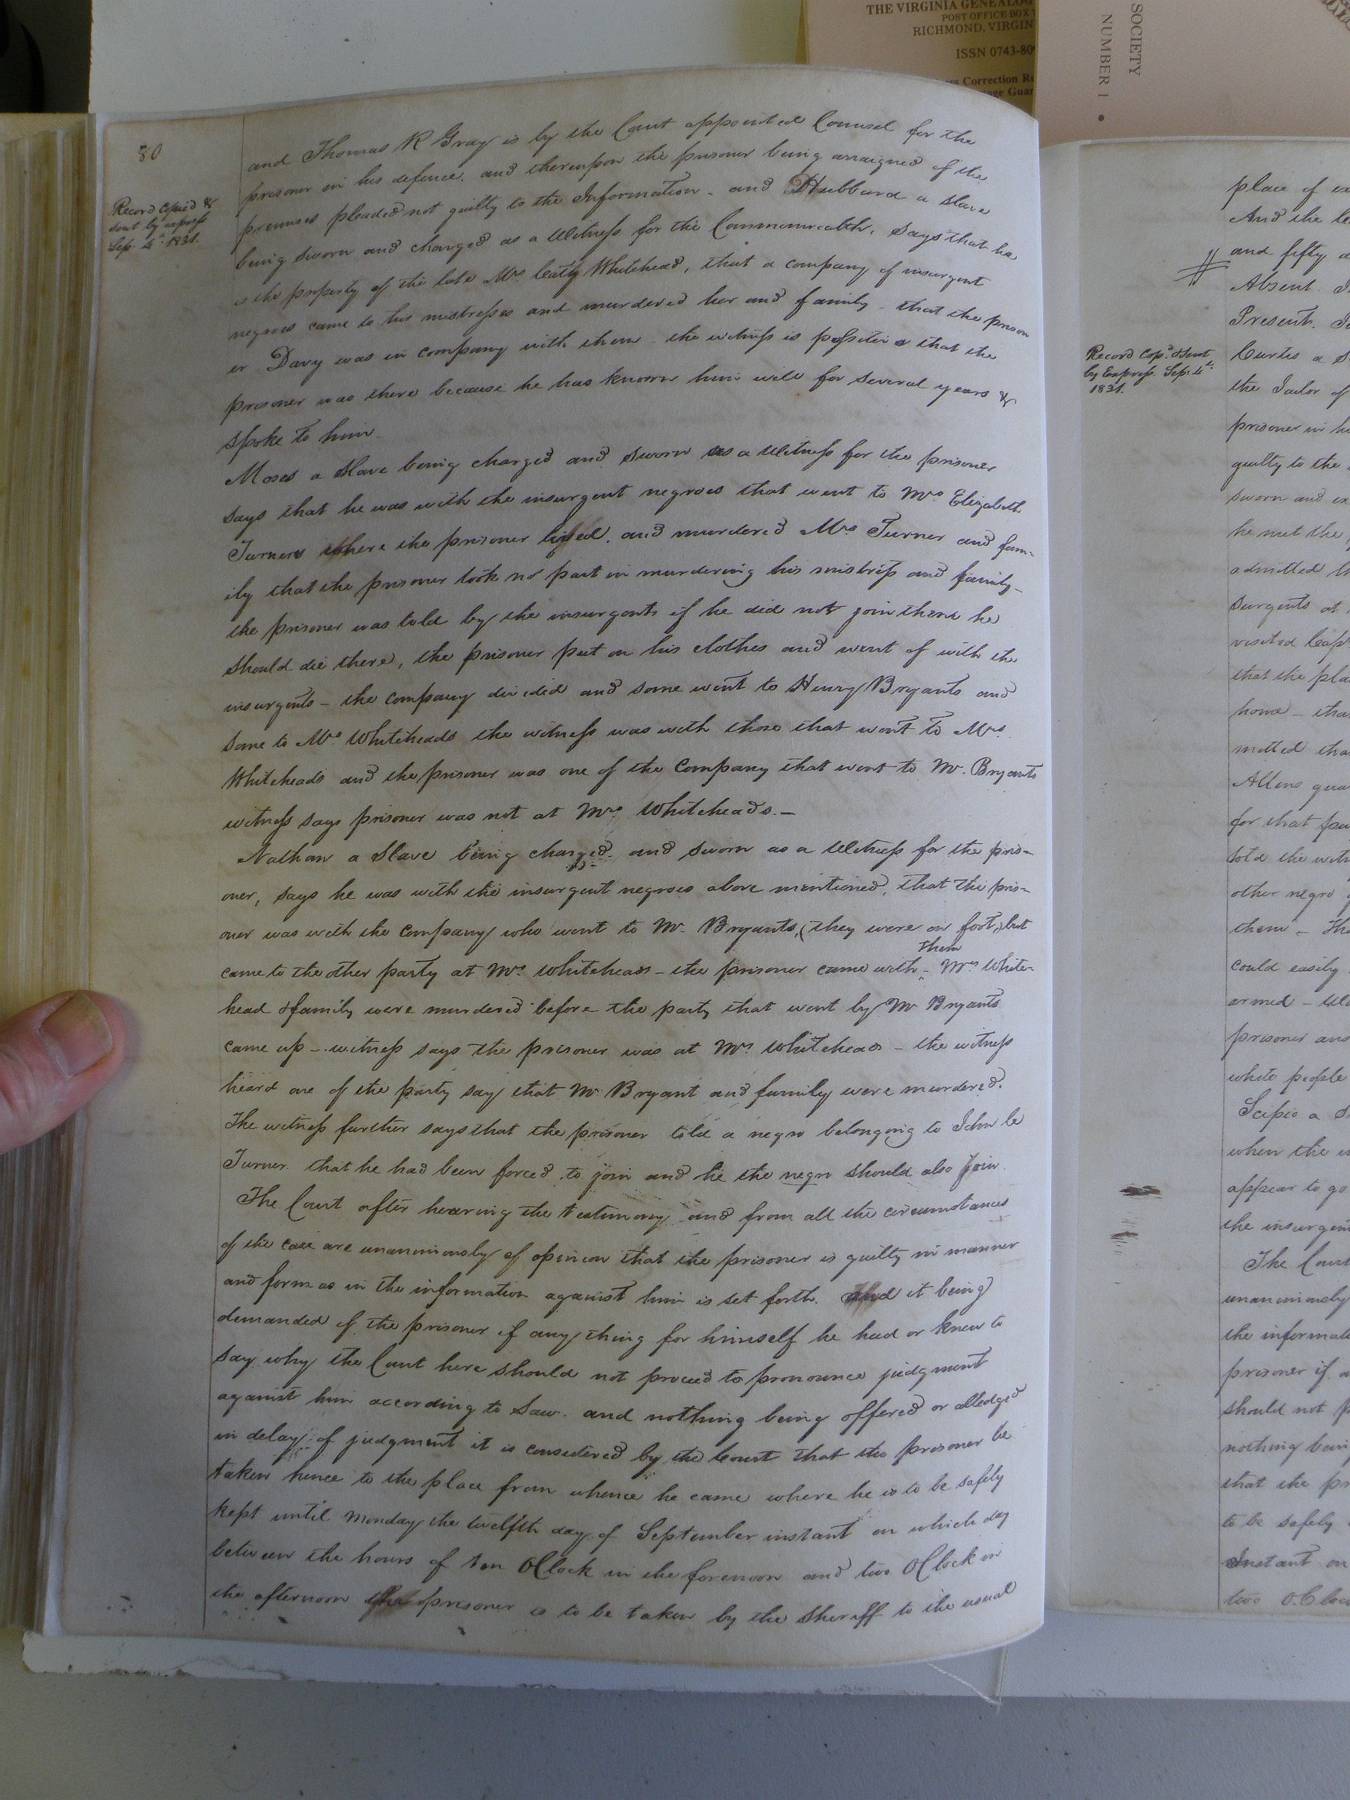 THE VIRGINIA GENEALO
POST OFFICE BOX
RICHMOND, VIRGIN
ISSN 0743-809
Correction Re
age Guar
SOCIETY
NUMBER 1
80
Record Copied &
sent by express
Sep. 4th 1831.
and Thomas R Gray is by the Court appointed Counsel for the
prisoner in his defence. and thereupon the prisoner being arraigned of the
premises pleaded not guilty to the Information - and Hubbard a slave
being sworn and charged as a Witness for the Commonwealth, says that he
is the property of the late Mrs. Caty Whitehead, that a company of insurgent
negroes came to his mistresses and murdered her and family - that the prison
er Davy was in company with them - the witness is positive that the
prisoner was there because he has known him well for several years &
spoke to him
Moses a slave being charged and sworn as a Witness for the prisoner
says that he was with the insurgent negroes that went to Mrs Elizabeth
Turners where the prisoner lived. and murdered Mrs Turner and fam-
ily that the prisoner took no part in murdering his mistress and family-
the prisoner was told by the insurgents if he did not join them he
should die there, the prisoner put on his clothes and went of with the
insurgents - the company divided and some went to Henry Bryants and
some to Mrs Whiteheads the witness was with those that went to Mrs.
Whiteheads and the prisoner was one of the company that went to Mr. Bryants
witness says prisoner was not at Mrs Whiteheads. -
Nathan a slave being charged. and sworn as a Witness for the pris-
oner, says he was with the insurgent negroes above mentioned, that the pris-
oner was with the company who went to Mr Bryants, (they were on foot,) but
came to the other party at Mrs Whiteheads - the prisoner came with them - Mrs White-
head & family were murdered before the party that went by Mr Bryants
came up - witness says the prisoner was at Mrs Whiteheads - the witness
heard one of the party say that Mr Bryant and family were murdered.
The witness further says that the prisoner told a negro belonging to John C
Turner that he had been forced to join and he the negro should also join
The Court after hearing the testimony and from all the circumstances
of the case are unanimously of opinion that the prisoner is guilty in manner
and form as in the information against him is set forth. And it being
demanded of the prisoner if any thing for himself he had or knew to
say why the Court here should not proceed to pronounce judgment
against him according to Law. and nothing being offered or alledged
in delay of judgment it is considered by the Court that the prisoner be
taken hence to the place from whence he came where he is to be safely
kept until Monday the twelfth day of September instant on which day
between the hours of ten OClock in the forenoon and two OClock in
the afternoon the prisoner is to be taken by the Sheriff to the usual
Record Copd. & sent
by Express Sep. 4th
1831.
place of
And the
and fifty
Absent
Present.
Curtis a
the Jailor of
prisoner in
guilty to the
sworn and
he met the
admitted
surgents at
visited
that the
home - tha
mitted tha
Allens
for that
told the
other negro
them -
could easily
armed -
prisoner and
white people
Scipio a
when the
appear to go
the insurgen
The Court
unanimously
the informa
prisoner if
should not
nothing bein
that the pr
to be safely
Instant on
two OCloc